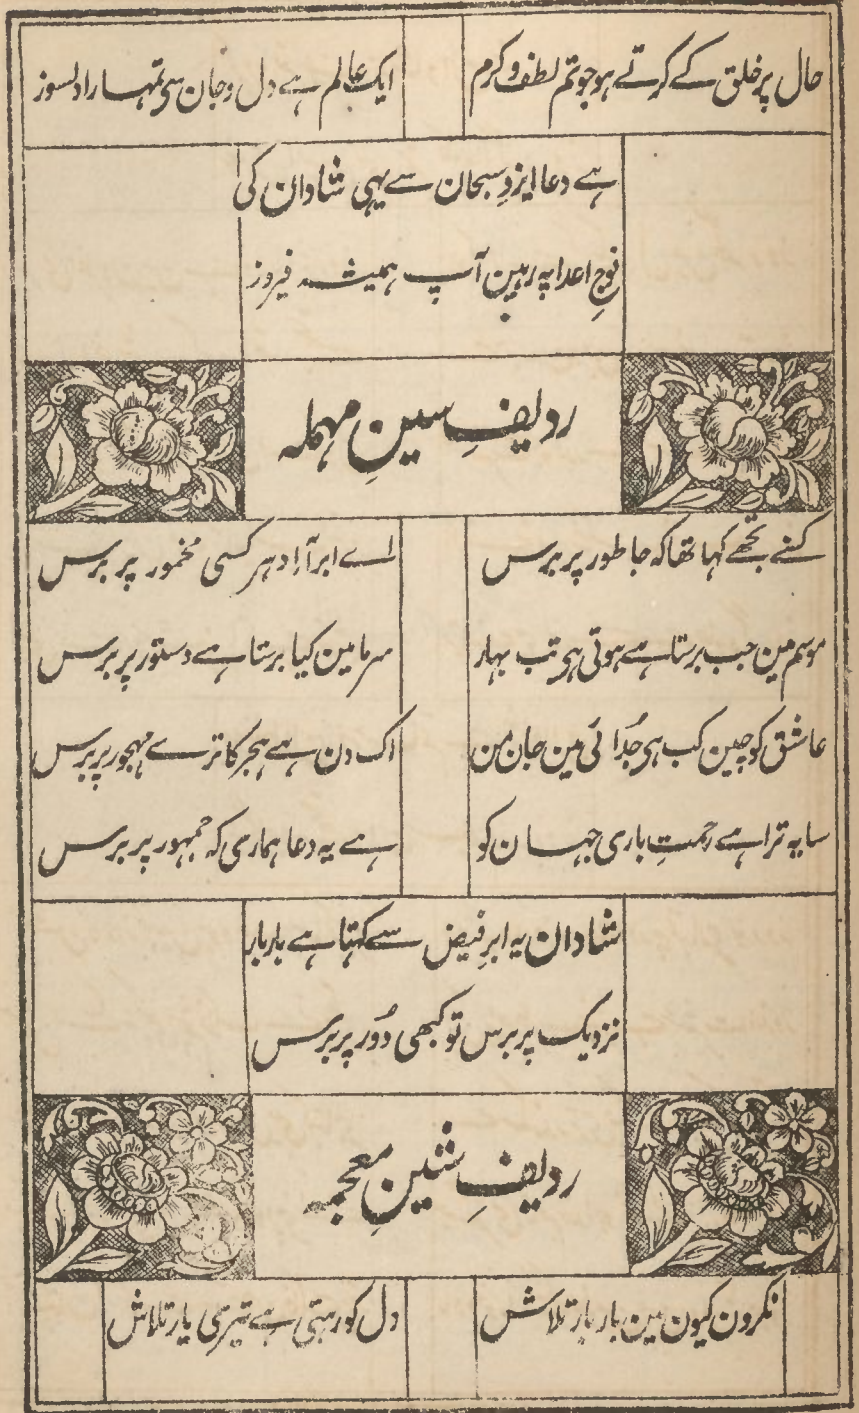 حال پر خلق کے کرتے ہو جو تم لطف و کرم
ایک عالم ہے دل و جان سی تمہارا دلسوز
ہے دعا ایزدِ سبحان سے یہی شادان کی
فوجِ اعدا پہ رہین آپ ہمیشہ فیروز
ردیفِ سینِ مہملہ
کسنے تجھے کہا تھا کہ جا طور پر برس
اے ابرِ آزاد ہر کسی مخمور پر برس
موسم مین جب برستا ہے ہوتی ہی تب بہار
سرما مین کیا برستا ہے دستور پر برس
عاشق کو چین کب ہی جُدائی مین جان من
اک دن ہے ہجر کا ترے مہجور پر برس
سایہ ترا ہے رحمتِ باری جہان کو
ہے یہ دعا ہماری کہ جمہور پر برس
شادان یہ ابرِ فیض سے کہتا ہے بار بار
نزدیک پر برس تو کبھی دُور پر برس
ردیفِ شینِ معجمہ
نکرون کیون مین بار بار تلاش
دل کو رہتی ہے تیری یار تلاش